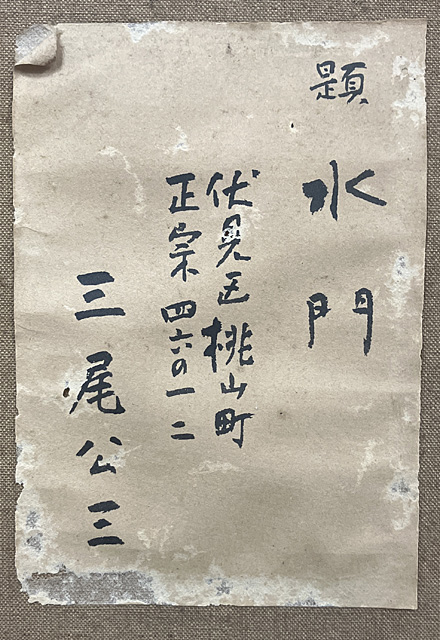 題 水門
伏見区桃山町
正宗四六の一二
三尾公三